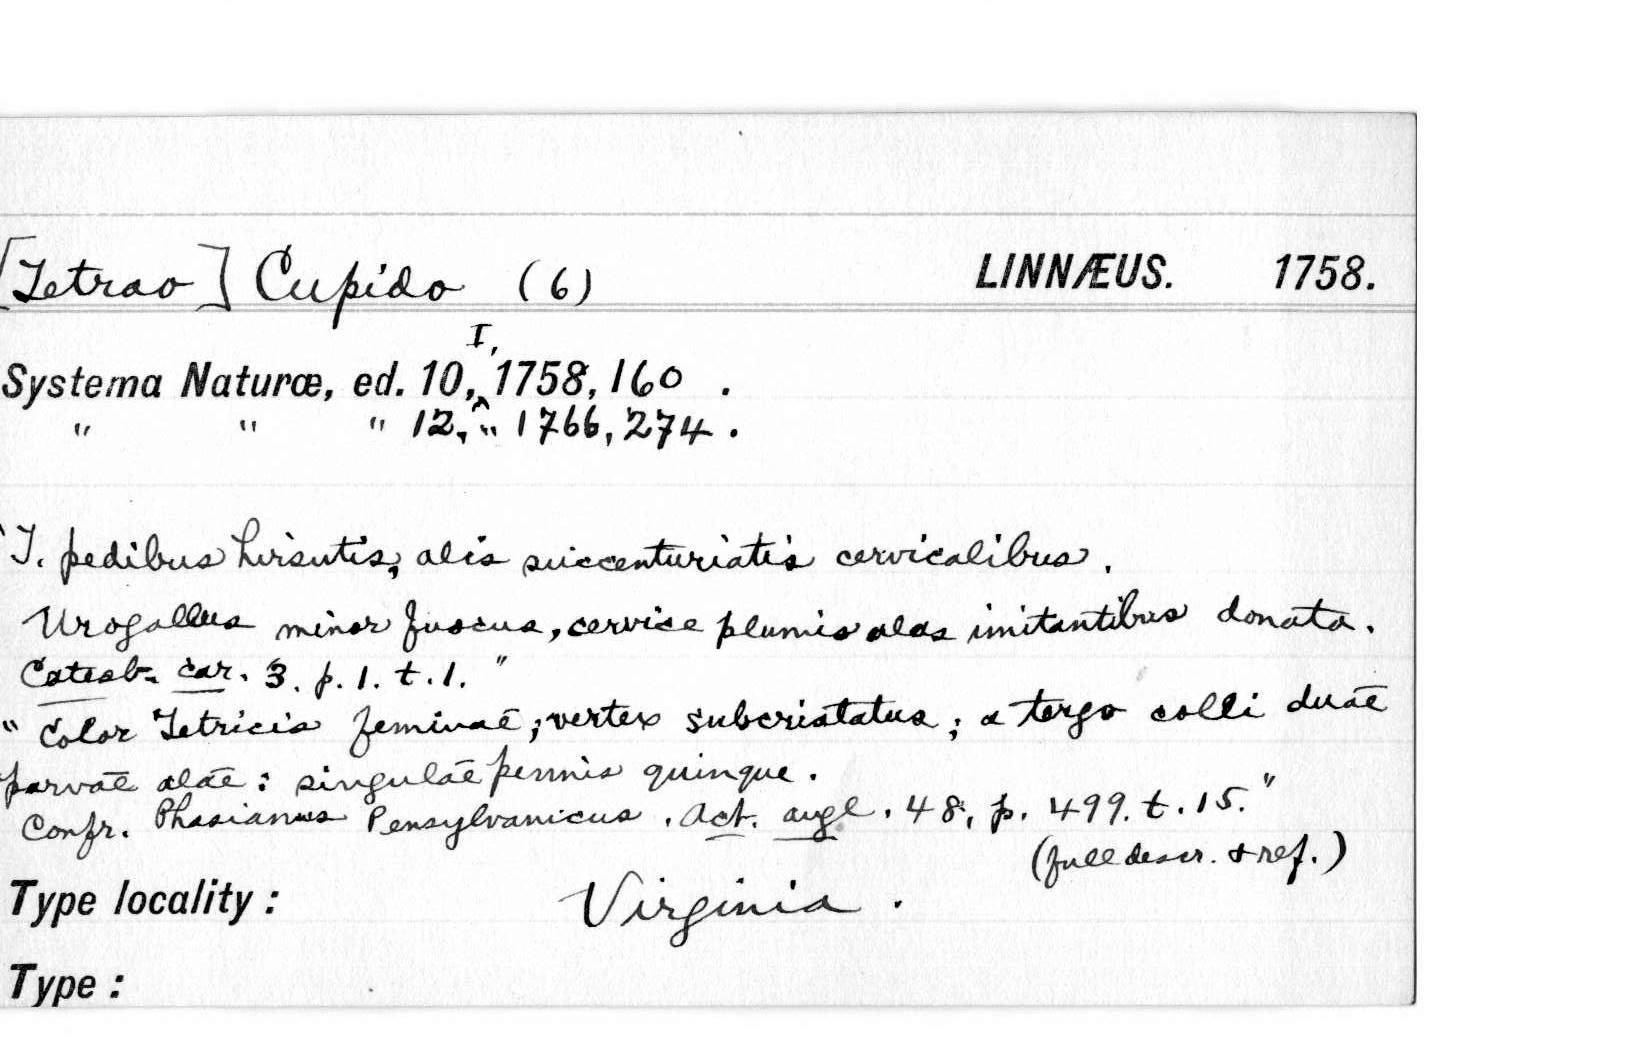 [Tetrao] Cupido (6) LINNÆUS. 1758.
Systema Naturæ, ed. 10, I, 1758, 160 .
" " " 12, " 1766, 274 .
"T. pedibus hirsutis, alis succenturiatis cervicalibus.
Urogallus minor fuscus, cervice plumis alas imitantibus donata.
Catesb. car. 3. p. 1. t. 1."
"Color Tetricis feminae; vertex subcristatus; a tergo colli duae
parvae alae: singulae pennis quinque.
Confr. Phasianus Pensylvanicus. Act. angl. 48, p. 499. t. 15."
(full descr. & ref.)
Type locality : Virginia .
Type :